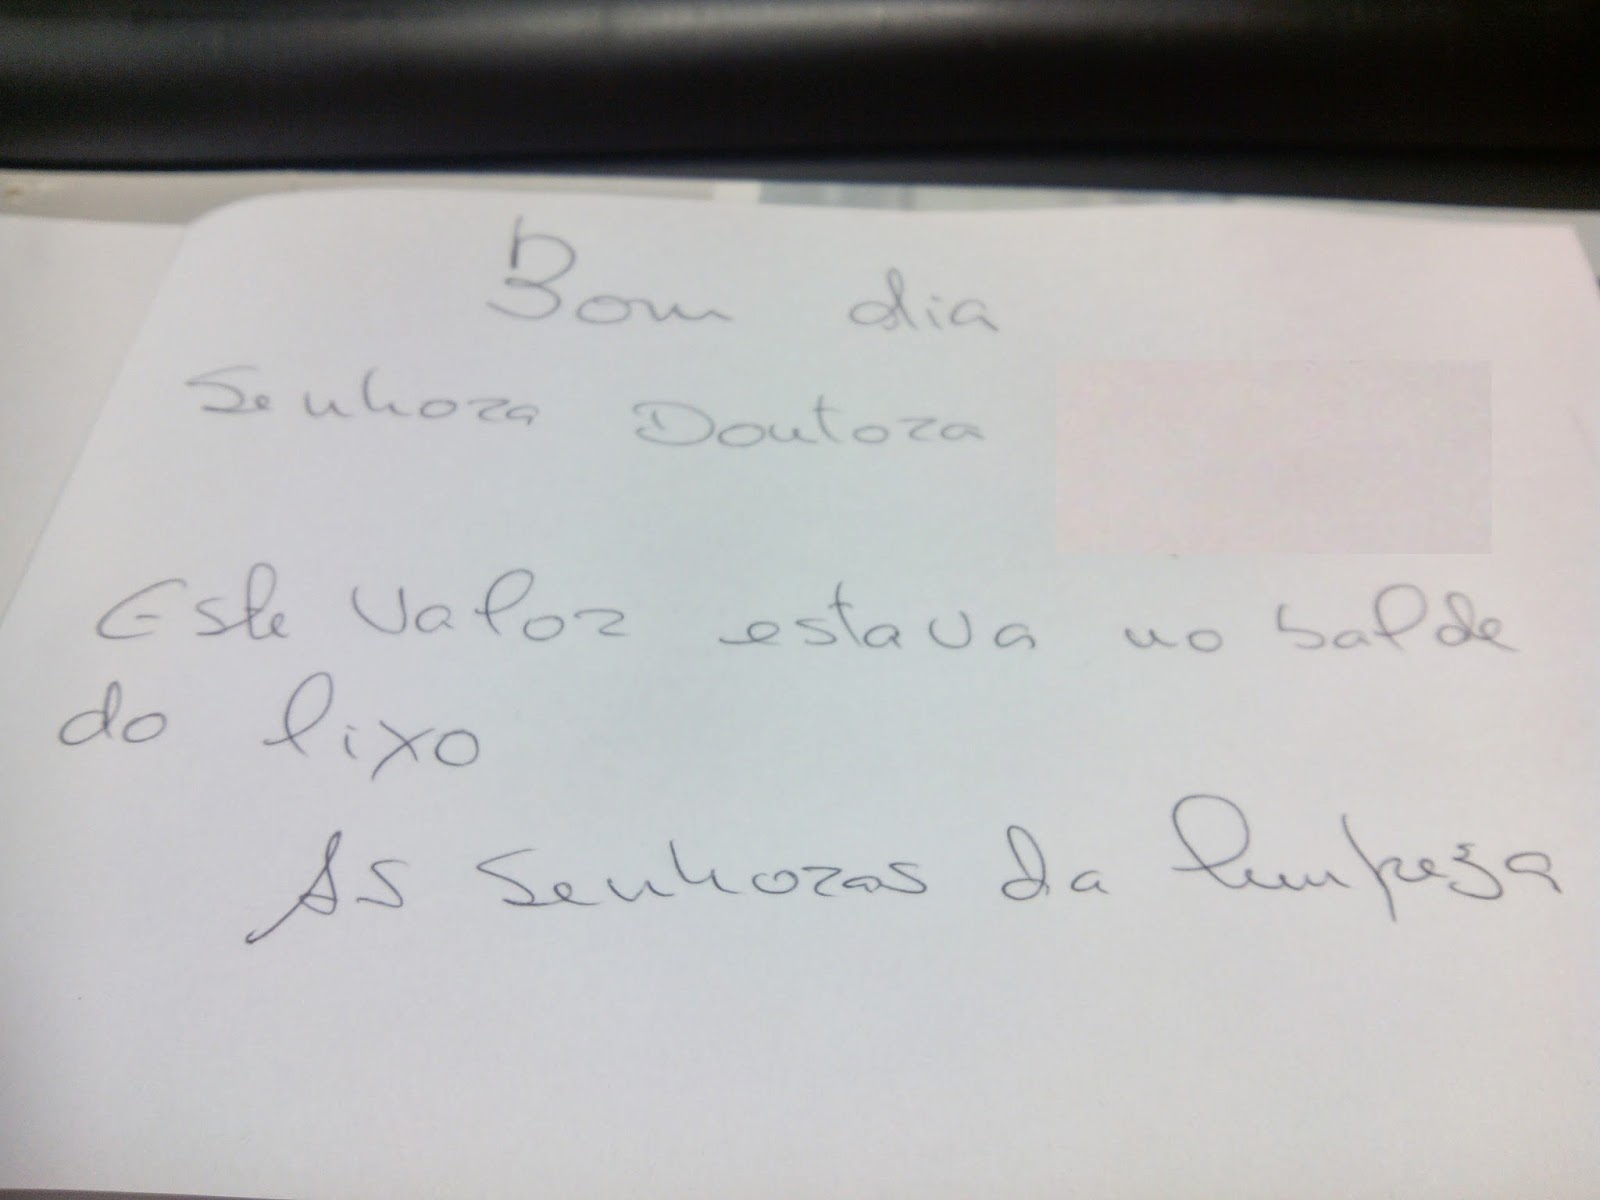 Bom dia
Senhora Doutora
Este valor estava no balde
do lixo
As Senhoras da limpeza